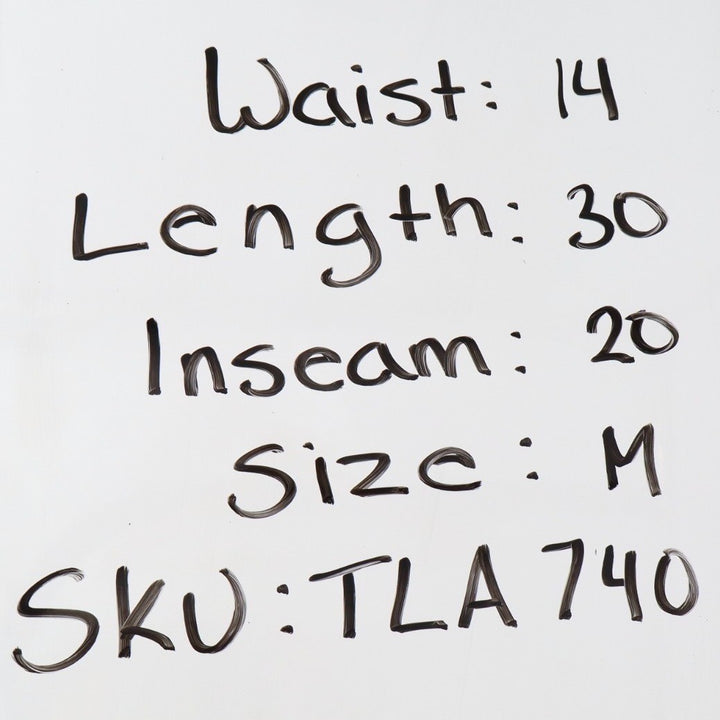 Waist: 14
Length: 30
Inseam: 20
Size: M
SKU: TLA 740